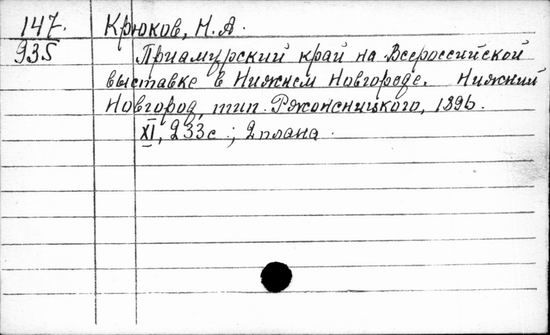 147. Крюков, Н. А.
935 Приамурский край на Всероссийской
выставке в Нижнем Новгороде. Нижний
Новгород, тип. Ржонсницкого, 1896.
XI, 233 с.; 2 плана.